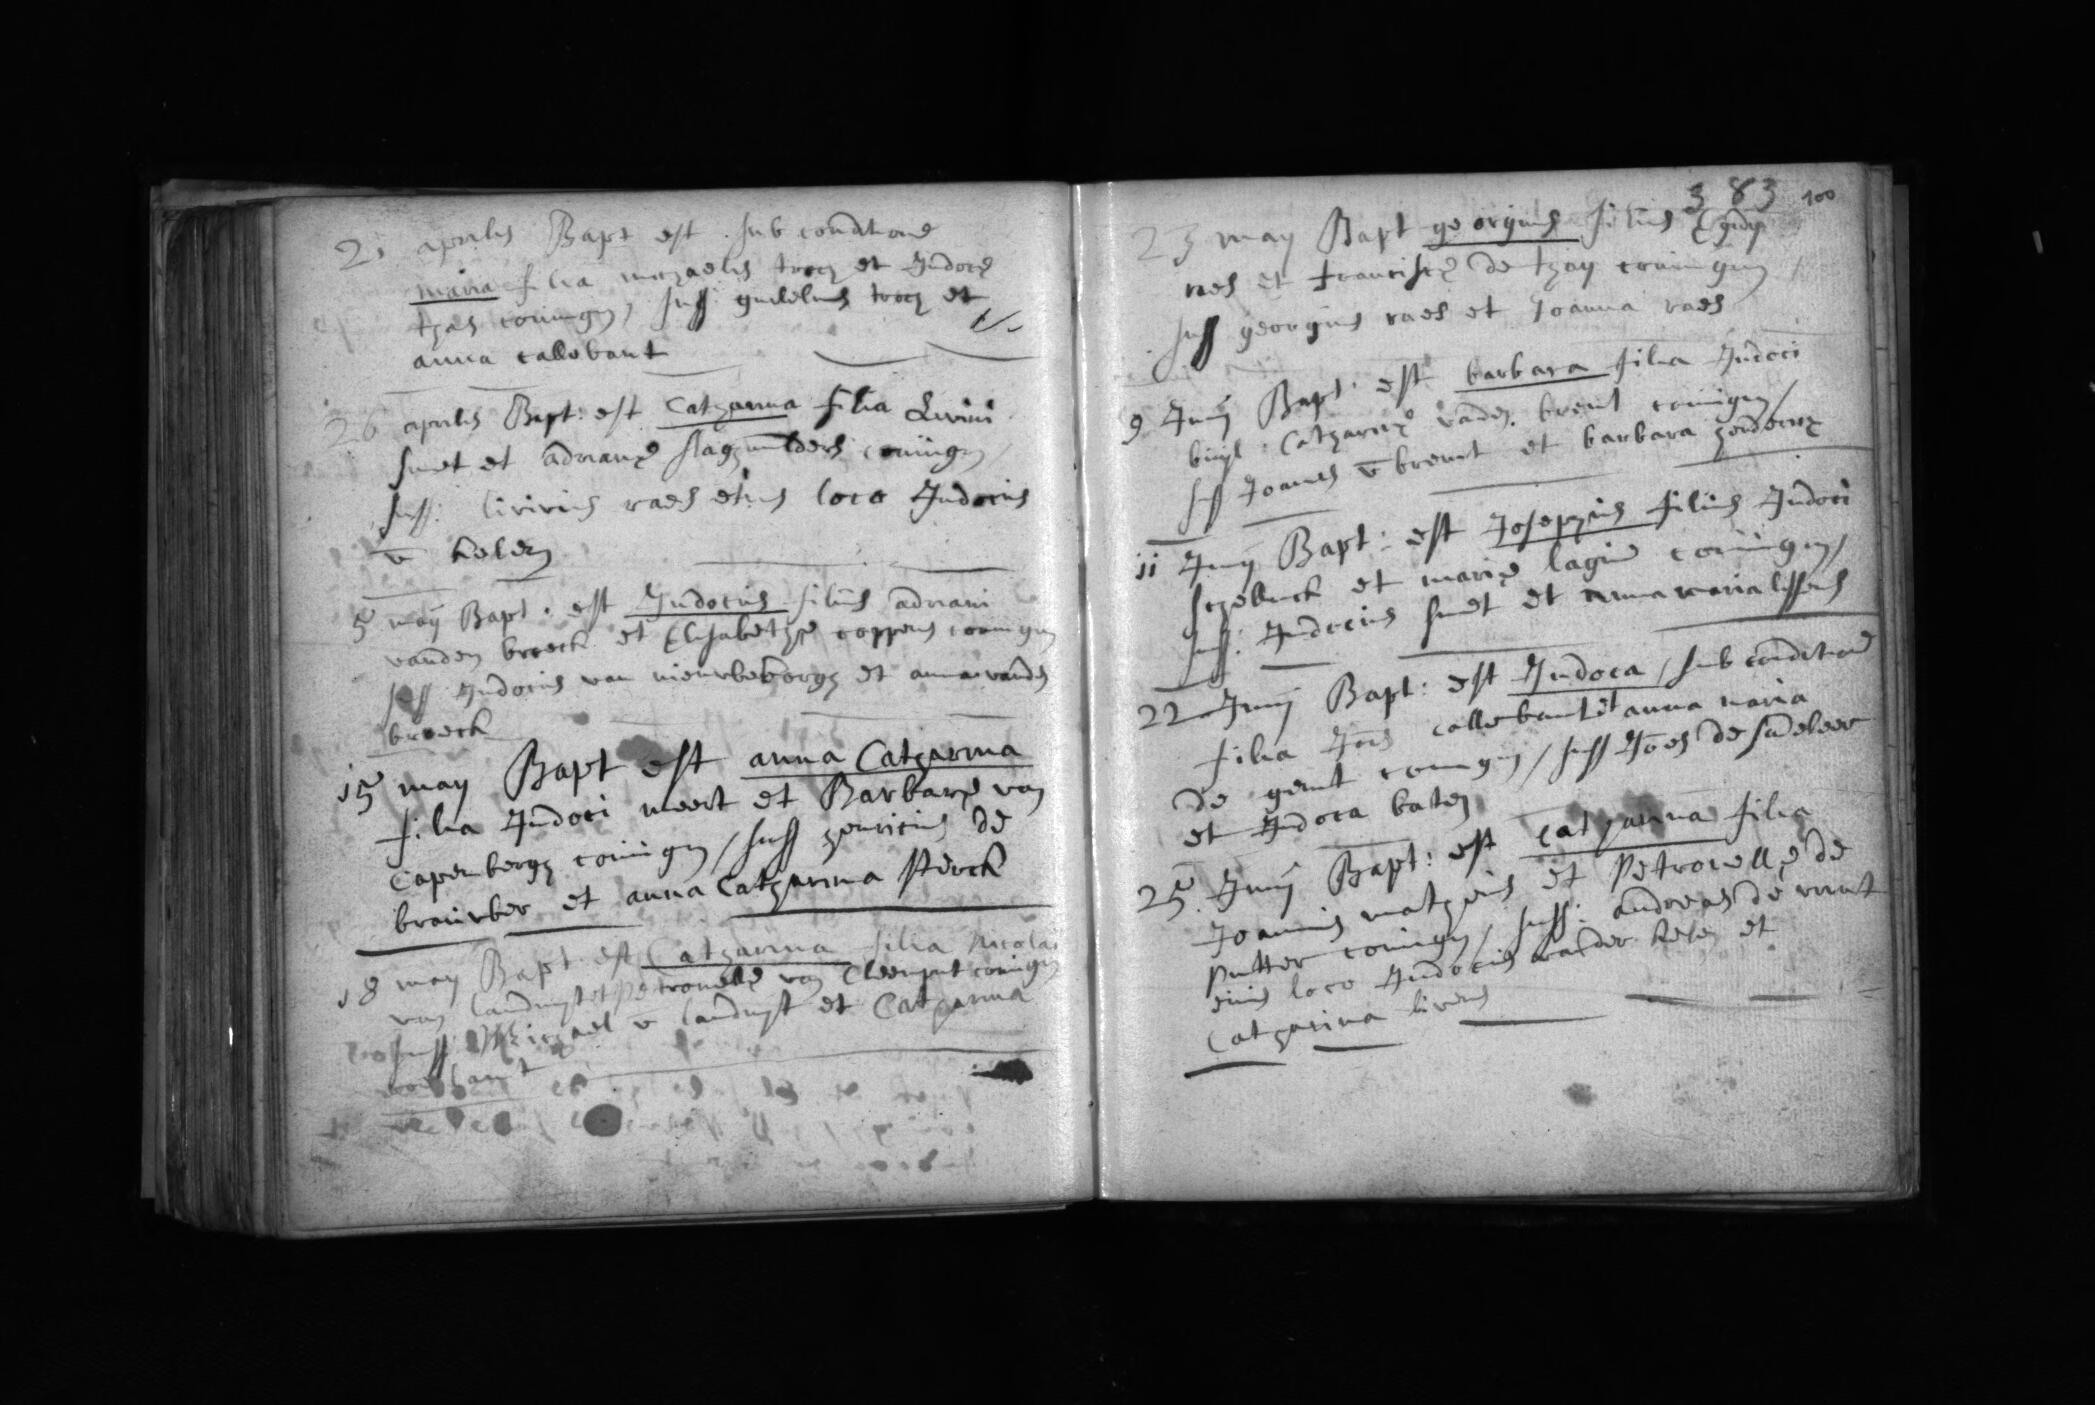 21 aprilis Bapt est sub conditione
maria filia michaelis trocz et Judocæ
thas coniugu, suss guilelmus trocz et
anna callebaut
26 aprilis Bapt: est Catharina filia Livini
smet et adrianæ slaghmulders coniugu
suss: livinus raes et eius loco Judocus
v kelen
5 maij Bapt. est Judocus filius adriani
vanden broeck et Elisabethæ coppens coniugu
suss Judocus van nieuwenborgh et anna vanden
broeck
15 may Bapt est anna Catharina
filia Judoci meert et Barbaræ van
Capenbergh coniugu, suss henricus de
brauwer et anna Catharina Sterck
18 may Bapt est Catharina filia Nicolai
van landuyt et Petronellæ van Cleemput coniugu
suss Michael v landuyt et Catharina
383 100
23 may Bapt georgius filius Egidij
raes et Francisca de coniugu
suss georgius raes et Joanna raes
9 Junij Bapt: est barbara filia Judoci
buijl Catharinæ vanden breut coniugu
suss Joannes v breut et barbara
11 Junij Bapt: est Josephus filius Judoci
schelinck et mariæ lagie coniugu
suss: Judocus smet et anna maria lissens
22 Junij Bapt: est Judoca, sub conditione
filia Jois callebaut et anna maria
de gent coniugu, suss Joes de sadeleer
et Judoca baten
25 Junij Bapt: est Catharina filia
Joannis mathijs et Petronellæ de
putter coniugu, suss: andreas de runt
eius loco Judocus vander kelen et
Catharina livens